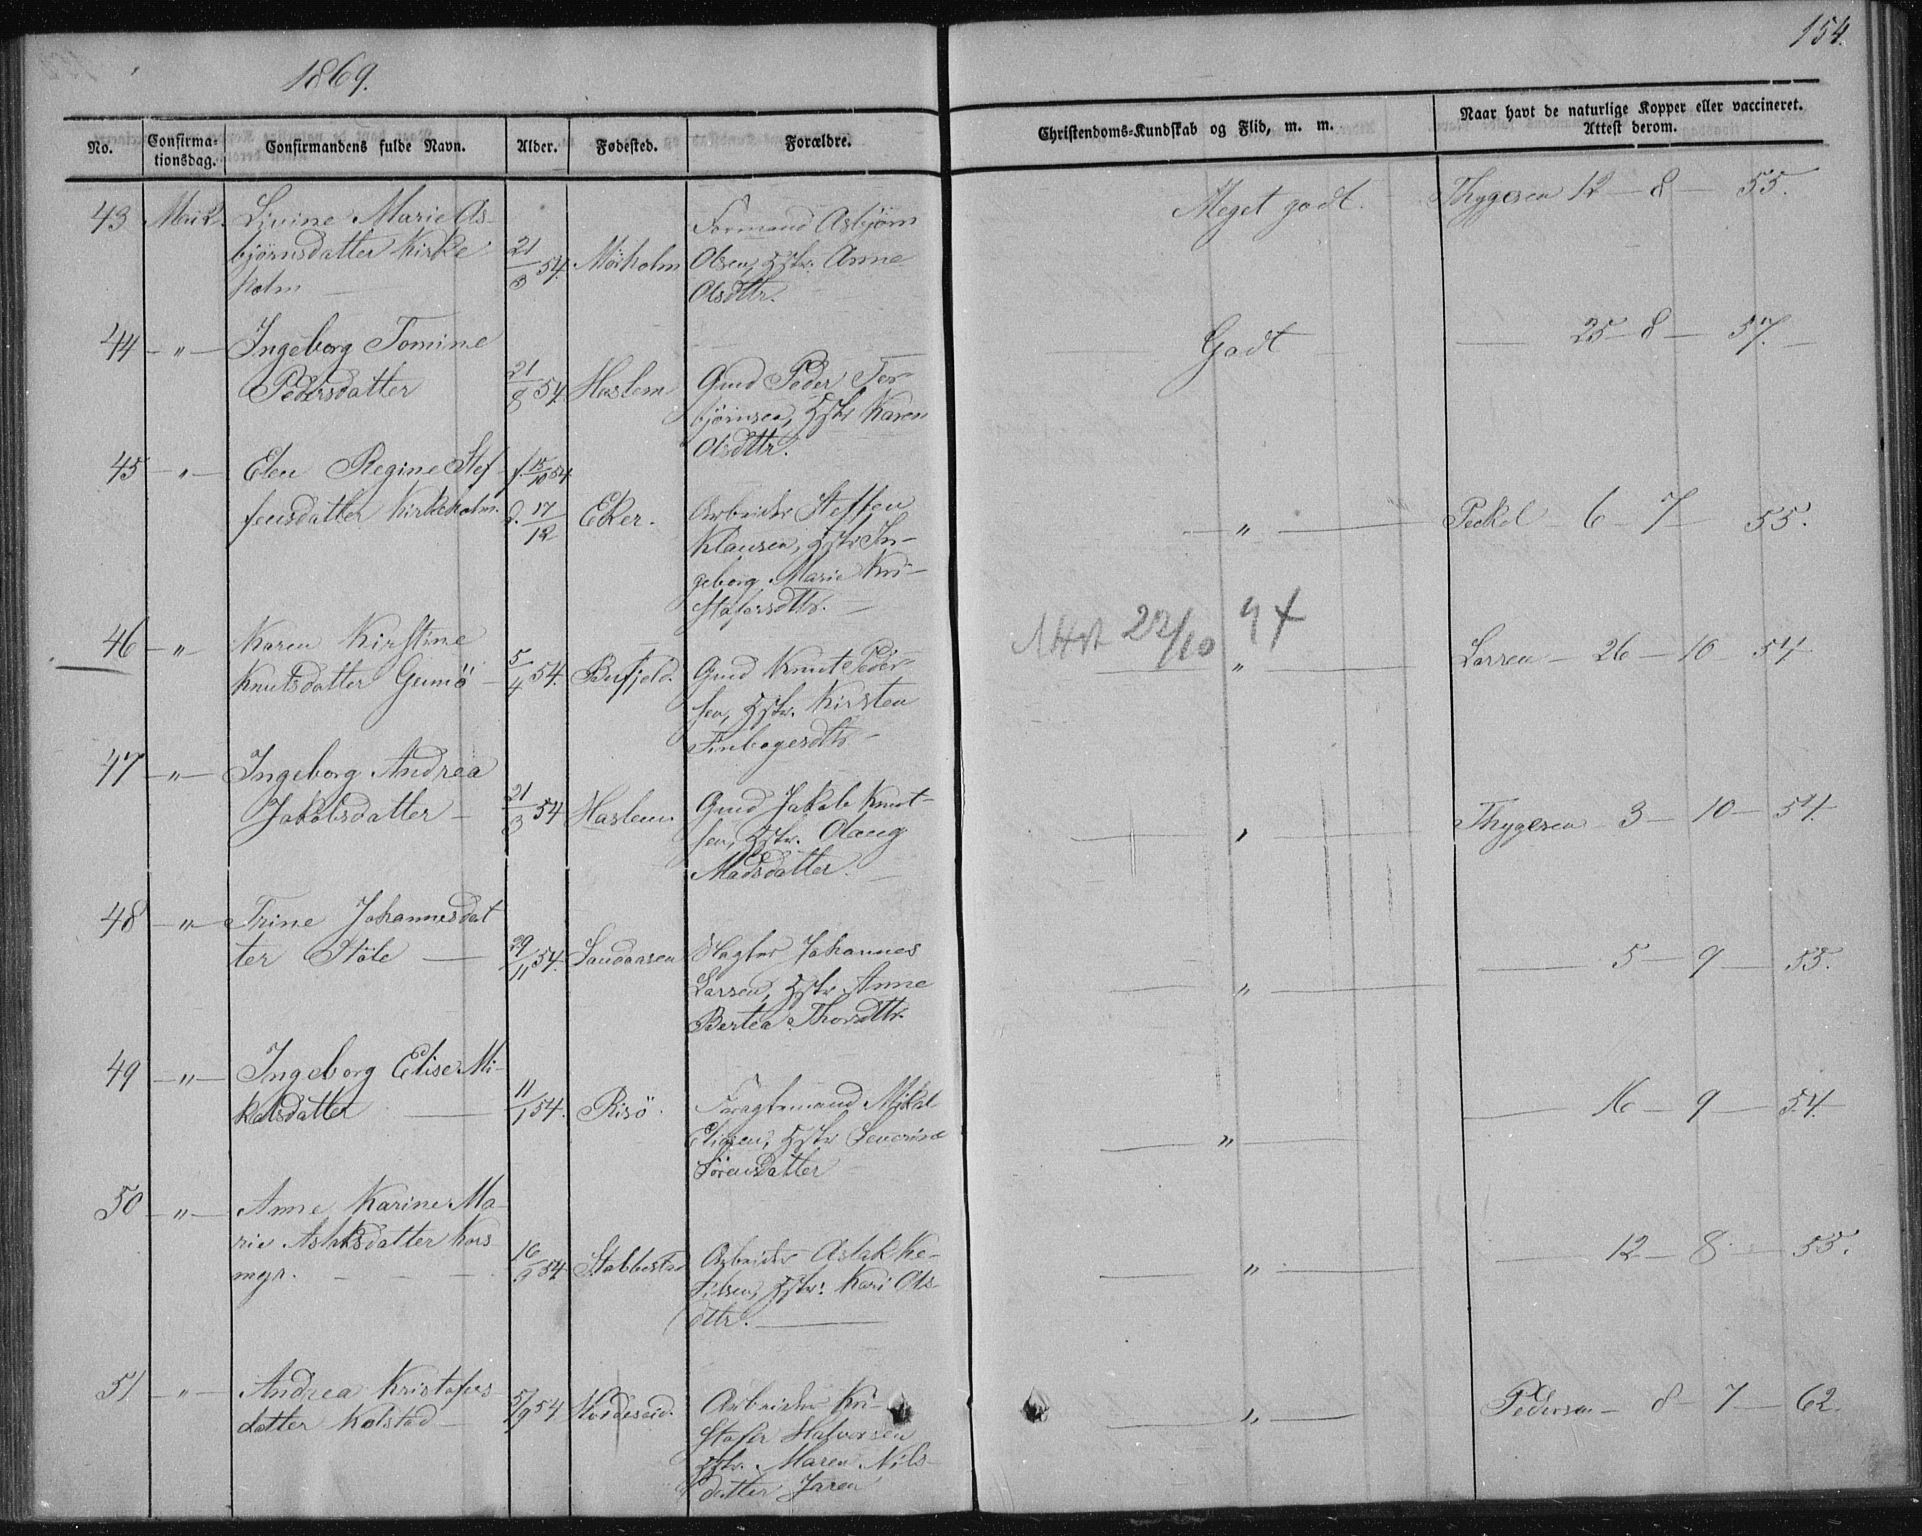 154.
1869.
No.
Confirmationsdag.
Confirmandens fulde Navn.
Alder.
Fødested.
Forældre.
Christendoms-Kundskab og Flid, m. m.
Naar havt de naturlige Kopper eller vaccineret.
Attest derom.
43 Mai 2. Livine Marie As-
bjørnsdatter Kirke-
holm
21/3 54. Mørholm
Formand Asbjørn
Olsen, Hstr. Anne
Olsdttr.
Meget godt. Thygesen 12 – 8 – 55.
44 – " – Ingeborg Tomine
Pedersdatter
21/8 54 Haslem
Gmd Peder Ter-
bjørnsen, Hstr Karen
Olsdttr.
Godt — 25 – 8 – 57. –
45 – " – Elen Regine Stef-
fensdatter Kirkeholm.
f. 15/10 54
d. 17/12 Eker.
Arbeider Steffen
Klausen, Hstr In-
geborg Marie Kri-
stofersdttr. –
– " – Peckel – 6 – 7 – 55.
46 – " Karen Kirstine
Knutsdatter Gumö –
5/4 54. Bufjeld.
Gmd Knut Peder-
sen, Hstr. Kirsten
Finbogesdtr –
Attst 22/10 94
– " – Larsen – 26 – 10 – 54
47 – " – Ingeborg Andrea
Jakobsdatter –
21/3 54 Haslem
Gmd Jakob Knut-
sen, Hstr. Olaug
Madsdatter. –
– " – Thygesen – 3 – 10 – 54.
48 – " – Trine Johannesdat
ter Støle –
29/11 54. Sandaasen
Johannes
Larsen, Hstr Anne
Bertea Thorsdttr.
– " – — 5 – 9 – 55.
49 – " – Ingeborg Elise Mi-
kalsdatter –
11/1 54. Risö.
Mikal
Eliasen, Hstr Severine
Sörensdatter
– " – — 16 – 9 – 54.
50 – " – Anne Karine Ma-
rie Aslaksdatter Kors-
myr. – – –
16/9 54 Stabbestad
Arbeider Aslak Ke-
tilsen, Hstr: Kari Ols-
dttr. —
– " – — 12 – 8 – 55.
51 – " – Andrea Kristofers
datter Kolstad –
5/9 54
Arbeider Kri-
stofer Halvorsen
Hstr. Maren Nils-
datter Jaren
– " – Pedersen – 8 – 7 – 62.